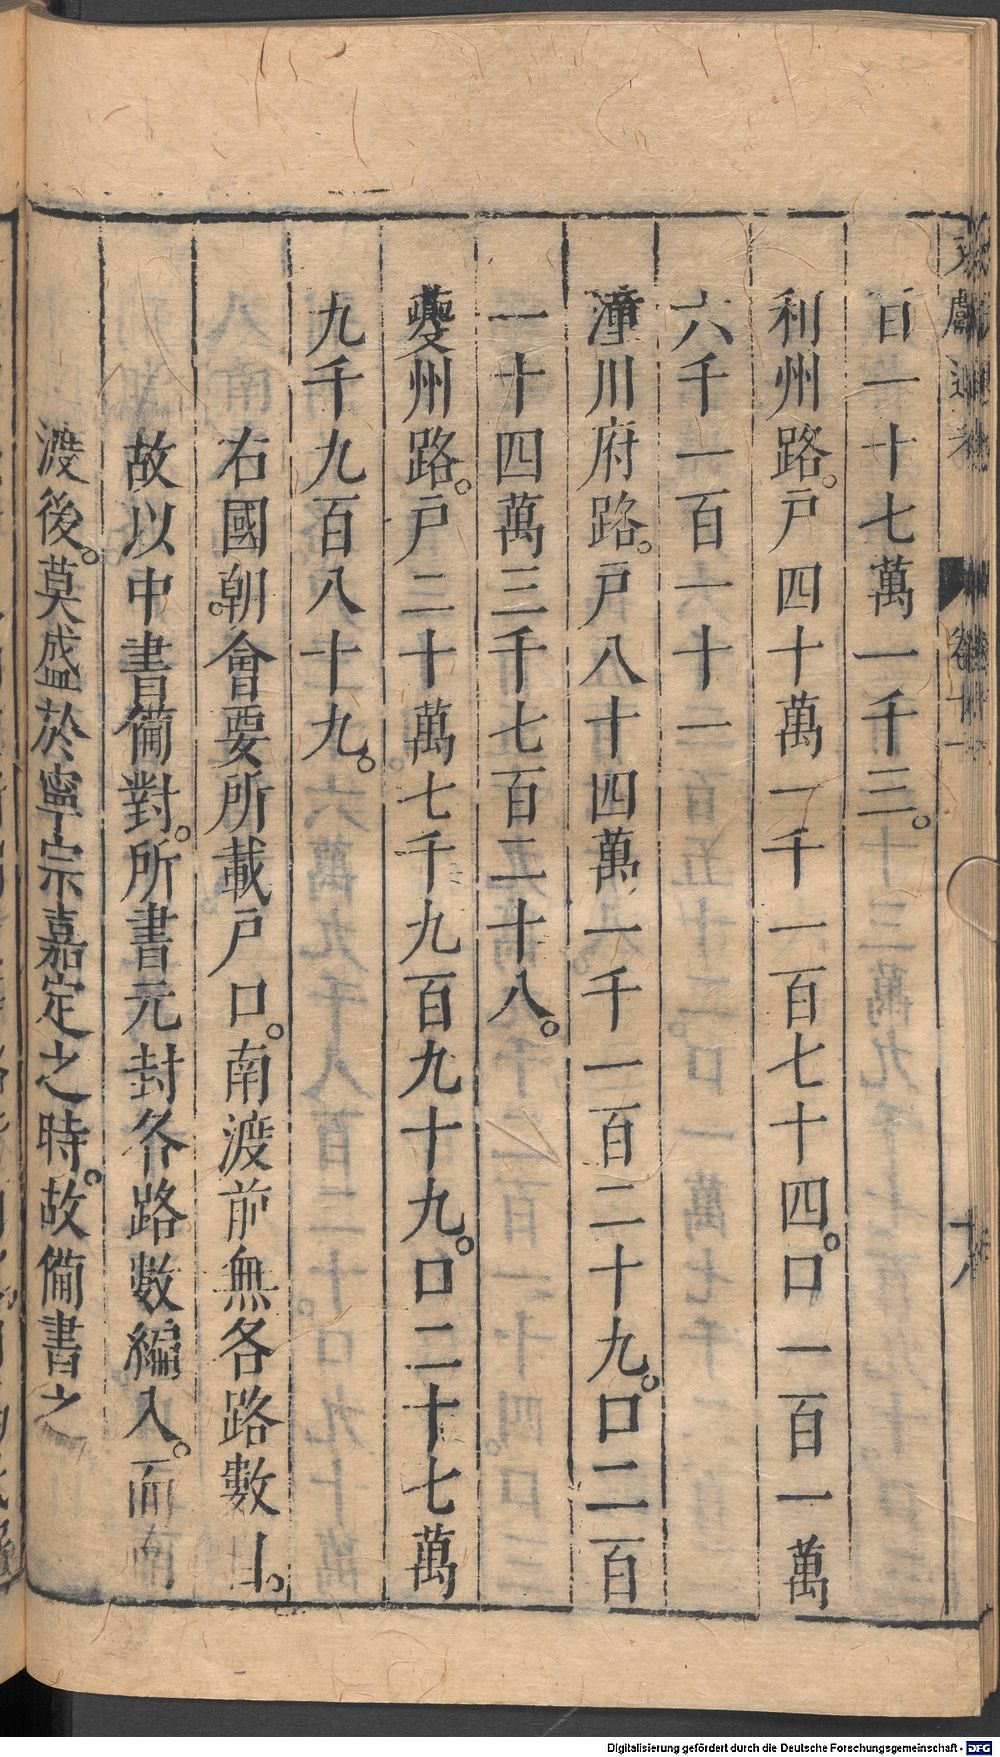 百一十七萬一千三。
利州路。戸四十萬一千一百七十四。口一百一萬
六千一百一十一
潼川府路。戸八十四萬一千一百二十九。口二百
一十四萬三千七百二十八。
夔州路。戸二十萬七千九百九十九。口二十七萬
九千九百八十九。
右國朝。會要所載戸口。南渡前無各路數目。
故以中書備對。所書元封各路數編入。而南
渡後。莫盛於寧宗嘉定之時。故備書之
文獻通考
卷十一
Digitalisierung gefördert durch die Deutsche Forschungsgemeinschaft - DFG